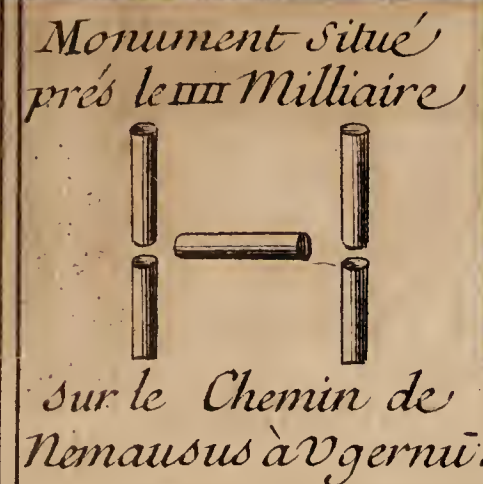 Monument Situé
prés le IIII Milliaire
sur le Chemin de
Nemausus à Vgernū.